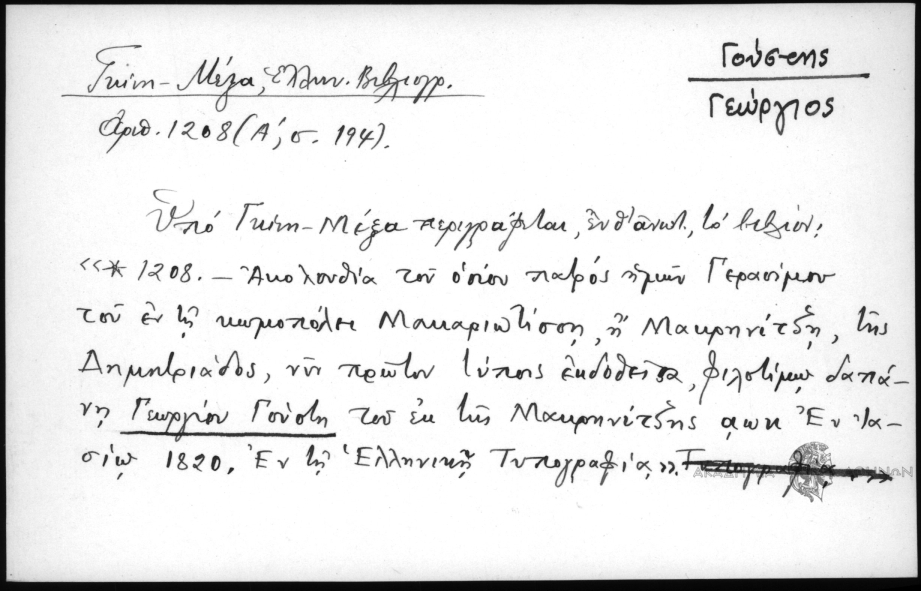 Γκίνη - Μέξα, Ἑλλην. Βιβλιογρ.
Ἀριθ. 1208 (Α΄, σ. 194).
Γούστης
Γεώργιος
Ὑπό Γκίνη - Μέξα περιγράφεται, ἐνθ' ἀνωτ., τό βιβλίον:
«* 1208. — Ἀκολουθία τοῦ ὁσίου πατρός ἡμῶν Γερασίμου
τοῦ ἐν τῇ κωμοπόλει Μακαριωτίσσῃ, ἤ Μακρηνίτζῃ, τῆς
Δημητριάδος, νῦν πρῶτον τύποις ἐκδοθεῖσα, φιλοτίμῳ δαπά-
νῃ Γεωργίου Γούστη τοῦ ἐκ τῆς Μακρηνίτζης αωκ Ἐν Ἰα-
σίῳ 1820. Ἐν τῇ Ἑλληνικῇ Τυπογραφίᾳ». Τυπογραφίᾳ
ΑΚΑΔΗΜΙΑ ΑΘΗΝΩΝ